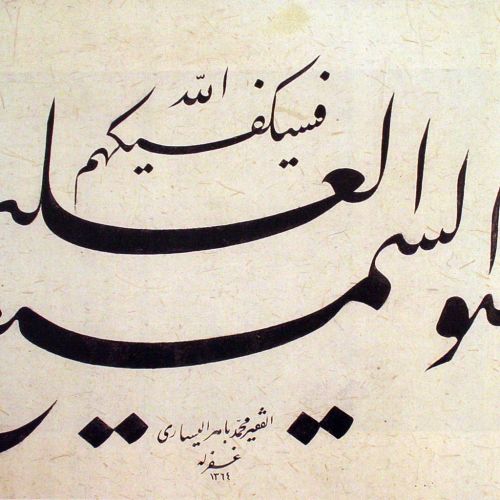 فسيكفيكهم الله
هو السميع العليم
الفقير محمد باهر اليساري
غفرله
١٣٦٤